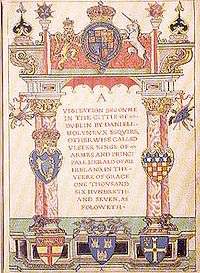 A
VISITATION BEGONNE
IN THE CITTIE OF
DVBLIN BY DANIELL
MOLYNEVX ESQVIER,
OTHERWISE CALLED
VLSTER KINGE OF
ARMES AND PRINCI
PALL HERALD OF AL
IRELAND IN THE
YEERE OF GRACE
ONE THOVSAND
SIX HVNDRETH
AND SEVEN, AS
FOLOWETH